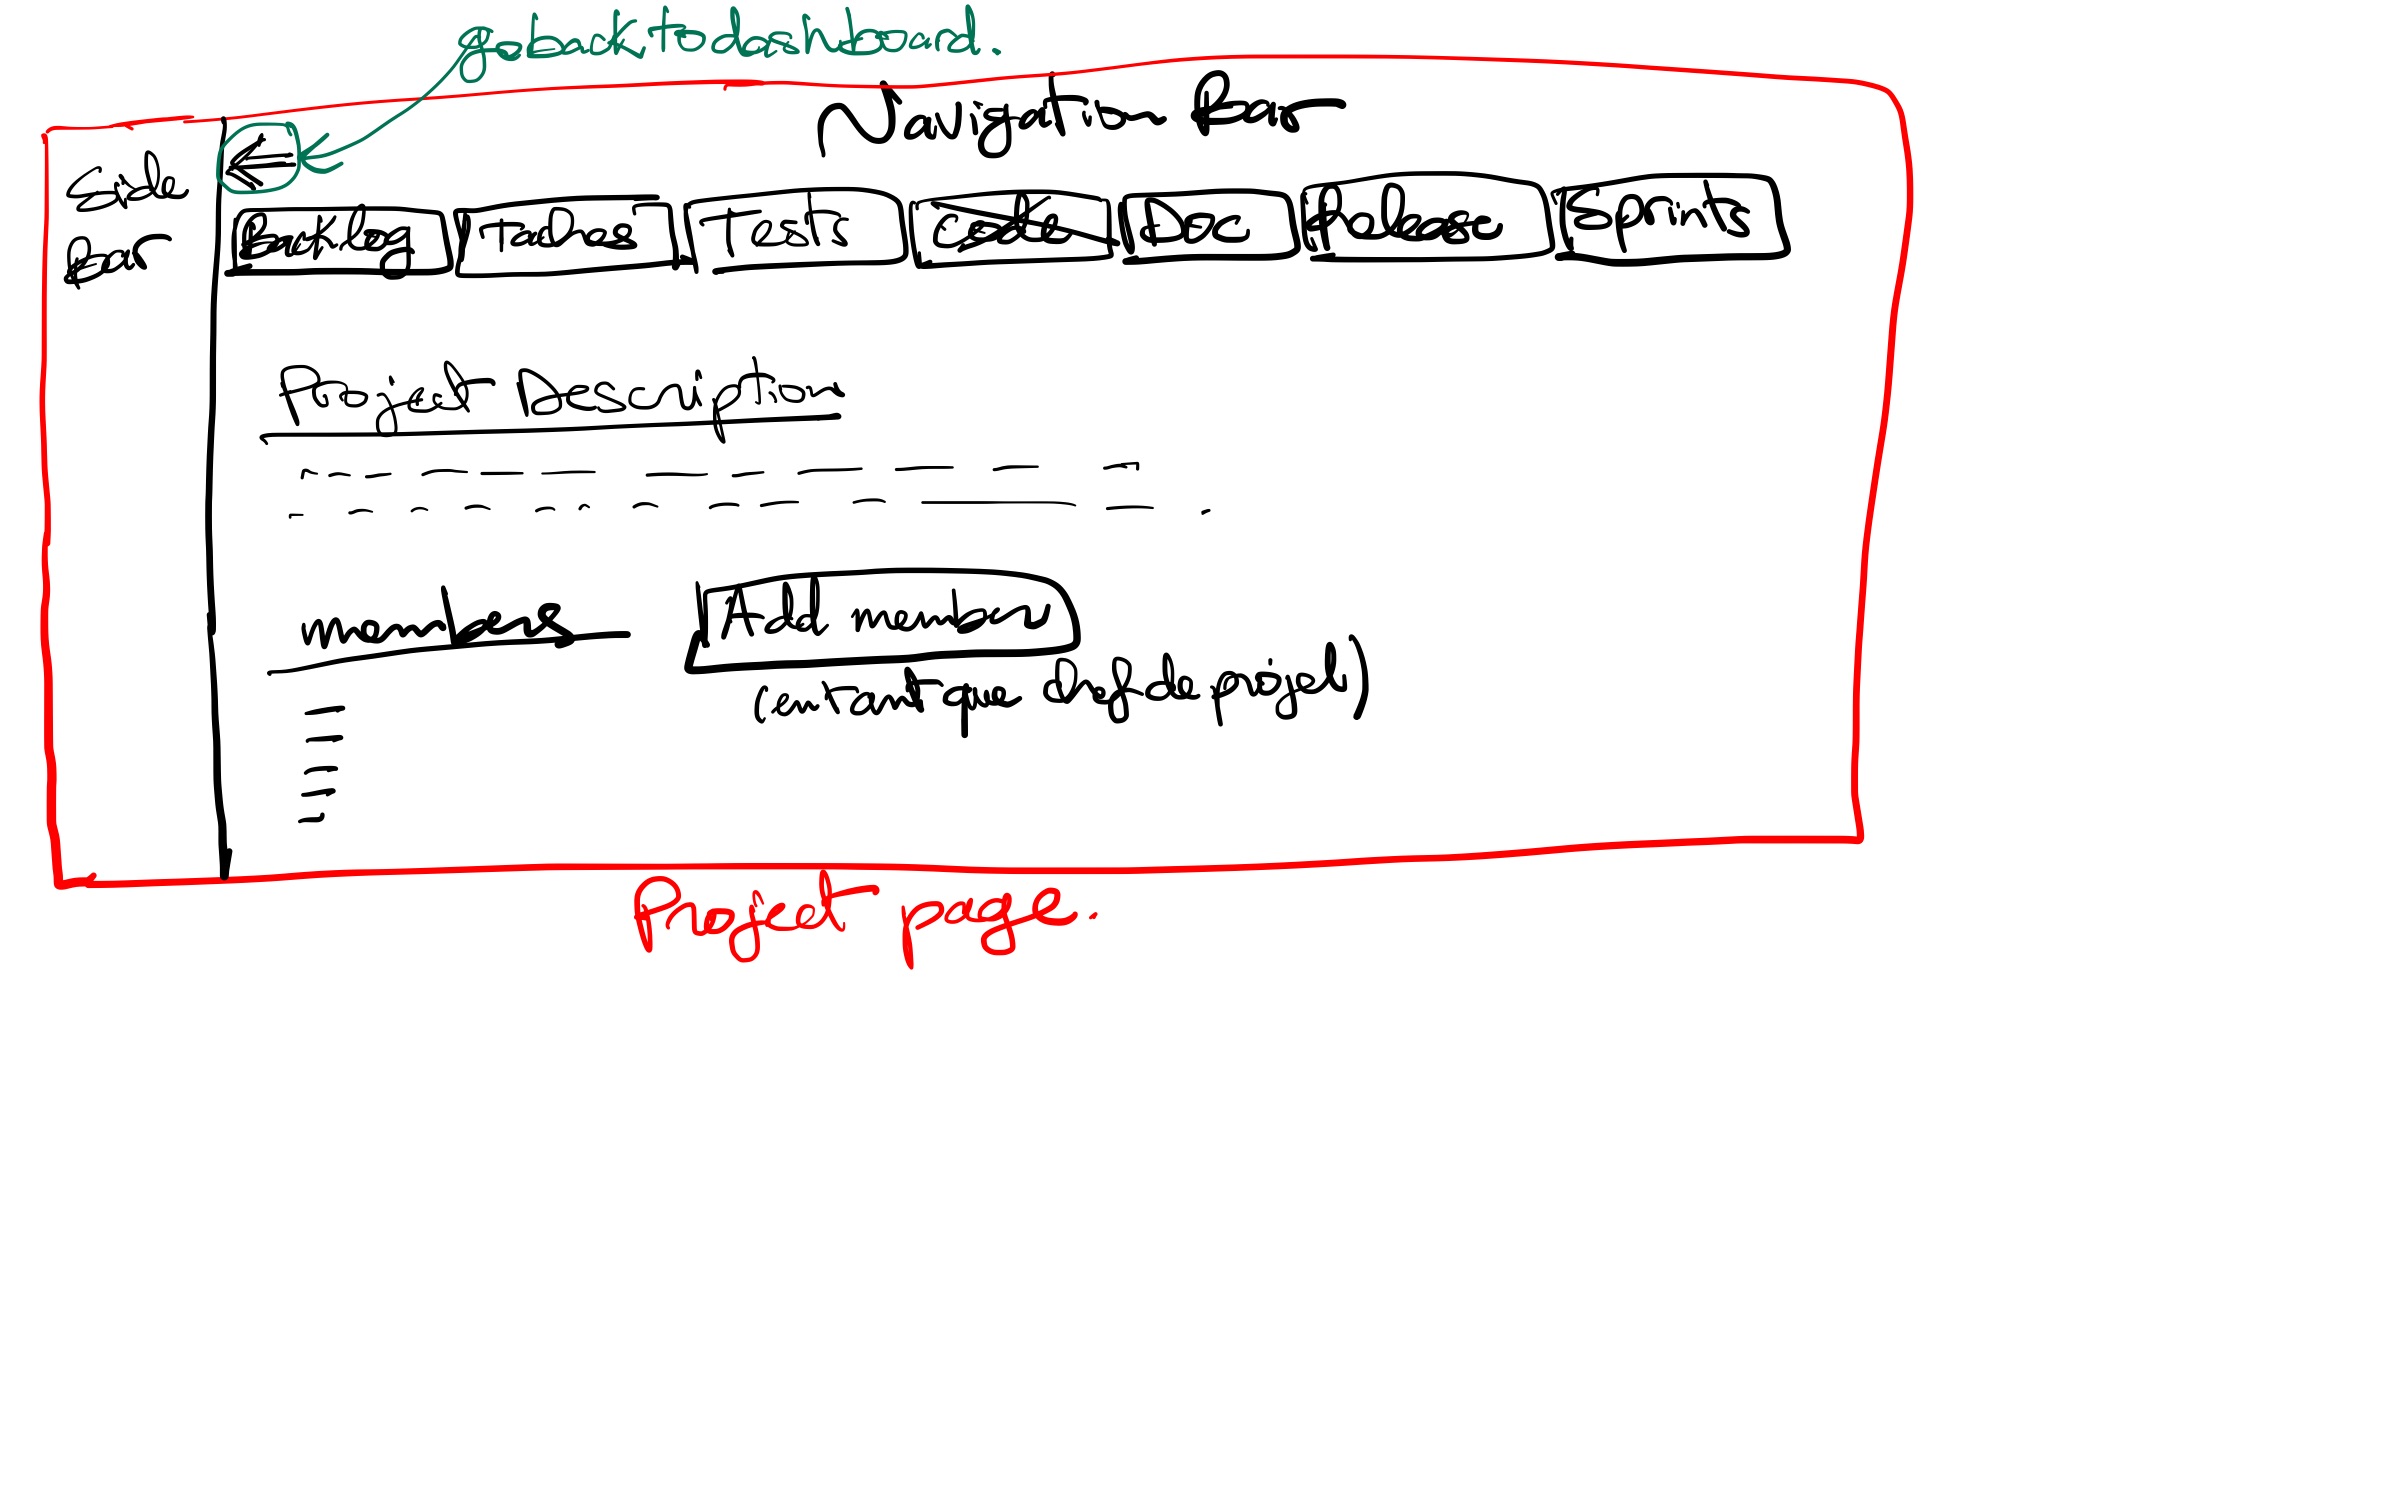 go back to dashboard.
Navigation Bar
Side
Bar
Backlog
Tâches
Tests
Code
Doc
Release
Sprints
Project Description
members
Add members
(en tant que chef de projet)
Project page.